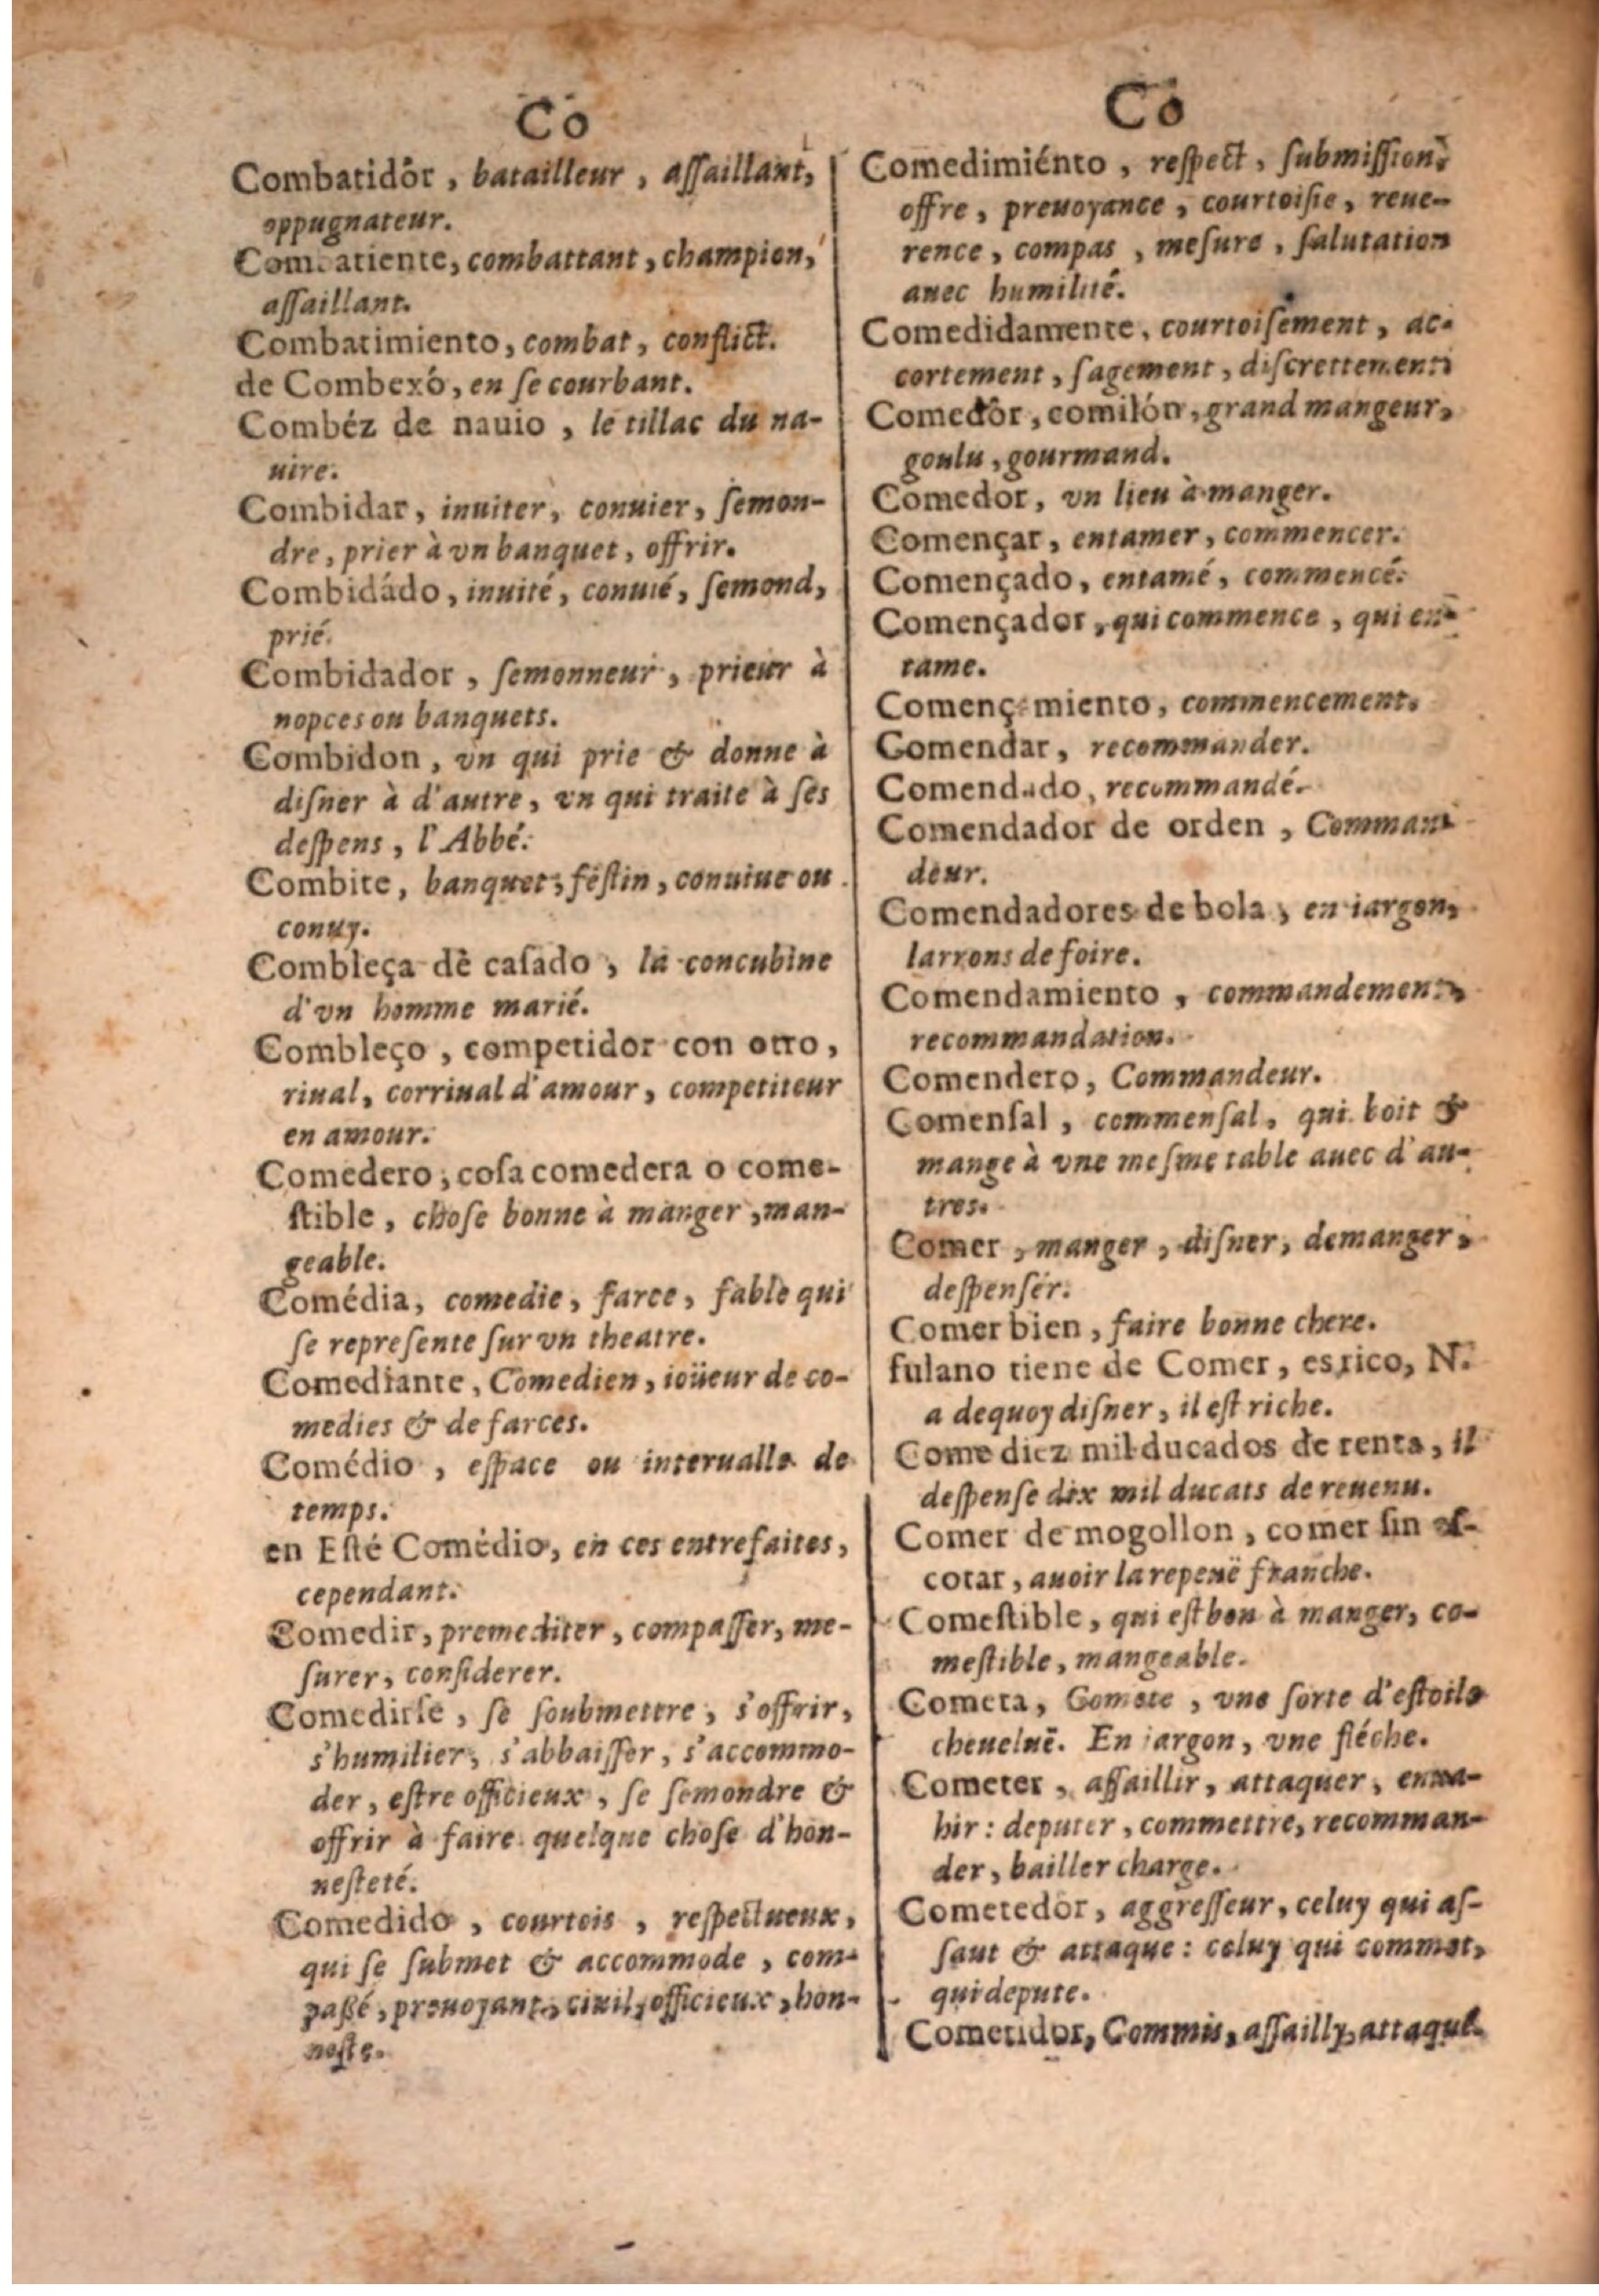 Co
Combatidór, batailleur, aſſaillant,
oppugnateur.
Combatiente, combattant, champion,
aſſaillant.
Combatimiento, combat, conflict.
de Combexó, en ſe courbant.
Combéz de nauio, le tillac du na-
uire.
Combidar, inuiter, conuier, ſemon-
dre, prier à vn banquet, offrir.
Combidádo, inuité, conuié, ſemond,
prié.
Combidador, ſemonneur, prieur à
nopces ou banquets.
Combidon, vn qui prie & donne à
diſner à d'autre, vn qui traite à ſes
deſpens, l'Abbé.
Combite, banquet, feſtin, conuiue ou
conuy.
Combleça de caſado, la concubine
d'vn homme marié.
Combleço, competidor con otro,
riual, corriual d'amour, competiteur
en amour.
Comedero, coſa comedera o come-
ſtible, choſe bonne à manger, man-
geable.
Comédia, comedie, farce, fable qui
ſe repreſente ſur vn theatre.
Comediante, Comedien, ioüeur de co-
medies & de farces.
Comédio, eſpace ou interualle de
temps.
en Eſté Comédio, en ces entrefaites,
cependant.
Comedir, premediter, compaſſer, me-
ſurer, conſiderer.
Comedirſe, ſe ſoubmettre, s'offrir,
s'humilier, s'abbaiſſer, s'accommo-
der, eſtre officieux, ſe ſemondre &
offrir à faire quelque choſe d'hon-
neſteté.
Comedido, courtois, reſpectueux,
qui ſe ſubmet & accommode, com-
paßé, preuoyant, ciuil, officieux, hon-
neſte.
Co
Comedimiénto, reſpect, ſubmiſſion,
offre, preuoyance, courtoiſie, reue-
rence, compas, meſure, ſalutation
auec humilité.
Comedidamente, courtoiſement, ac-
cortement, ſagement, diſcrettement
Comedór, comilón, grand mangeur,
goulu, gourmand.
Comedor, vn lieu à manger.
Començar, entamer, commencer.
Començado, entamé, commencé.
Començador, qui commence, qui en-
tame.
Començamiento, commencement.
Comendar, recommander.
Comendado, recommandé.
Comendador de orden, Comman-
deur.
Comendadores de bola, en iargon,
larrons de foire.
Comendamiento, commandement,
recommandation.
Comendero, Commandeur.
Comenſal, commenſal, qui boit &
mange à vne meſme table auec d'au-
tres.
Comer, manger, diſner, demanger,
deſpenſer.
Comer bien, faire bonne chere.
fulano tiene de Comer, es rico, N.
a dequoy diſner, il eſt riche.
Come diez mil ducados de renta, il
deſpenſe dix mil ducats de reuenu.
Comer de mogollon, comer ſin eſ-
cotar, auoir la repeuë franche.
Comeſtible, qui eſt bon à manger, co-
meſtible, mangeable.
Cometa, Comete, vne ſorte d'eſtoile
cheueluë. En iargon, vne fléche.
Cometer, aſſaillir, attaquer, enua-
hir: deputer, commettre, recomman-
der, bailler charge.
Cometedor, aggreſſeur, celuy qui aſ-
ſaut & attaque: celuy qui commet,
qui depute.
Cometidor, Commis, aſſailly, attaqué.